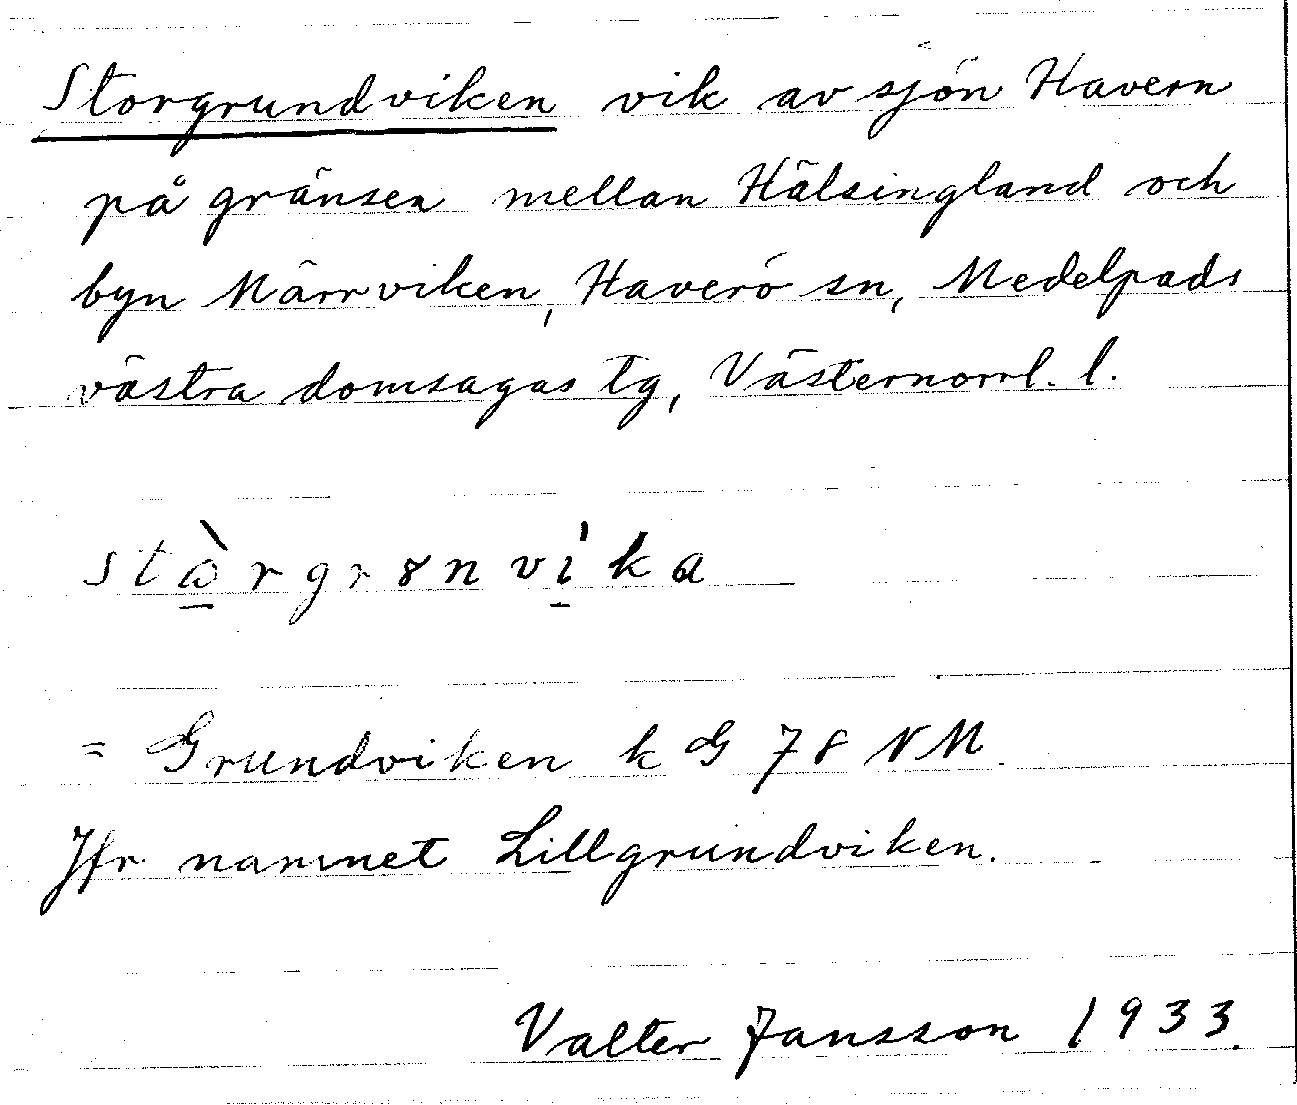 Storgrundviken vik av sjön Havern
på gränsen mellan Hälsingland och
byn Märrviken, Haverö sn, Medelpads
västra domsagas tg, Västernorrl. l.
stὼ̲rgrȣnvi̲̍ka
= Grundviken k G 78 NM.
Jfr namnet Lillgrundviken.
Valter Jansson 1933.